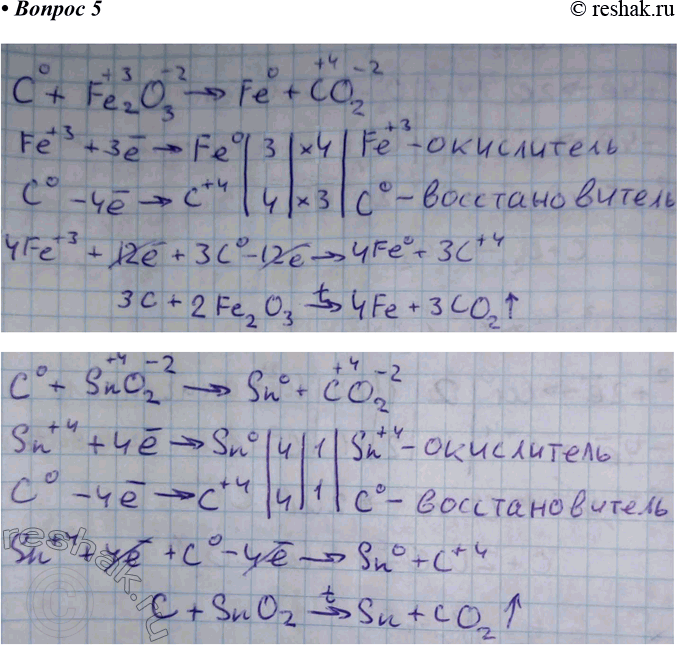 • Вопрос 5
© reshak.ru
C⁰ + Fe₂⁺³O₃⁻² → Fe⁰ + C⁺⁴O₂⁻²
Fe⁺³ + 3ē → Fe⁰ | 3 | ×4 | Fe⁺³ - окислитель
C⁰ - 4ē → C⁺⁴ | 4 | ×3 | C⁰ - восстановитель
4Fe⁺³ + 12ē + 3C⁰ - 12ē → 4Fe⁰ + 3C⁺⁴
3C + 2Fe₂O₃ →ᵗ 4Fe + 3CO₂↑
C⁰ + Sn⁺⁴O₂⁻² → Sn⁰ + C⁺⁴O₂⁻²
Sn⁺⁴ + 4ē → Sn⁰ | 4 | 1 | Sn⁺⁴ - окислитель
C⁰ - 4ē → C⁺⁴ | 4 | 1 | C⁰ - восстановитель
Sn⁺⁴ + 4ē + C⁰ - 4ē → Sn⁰ + C⁺⁴
C + SnO₂ →ᵗ Sn + CO₂↑
reshak.ru